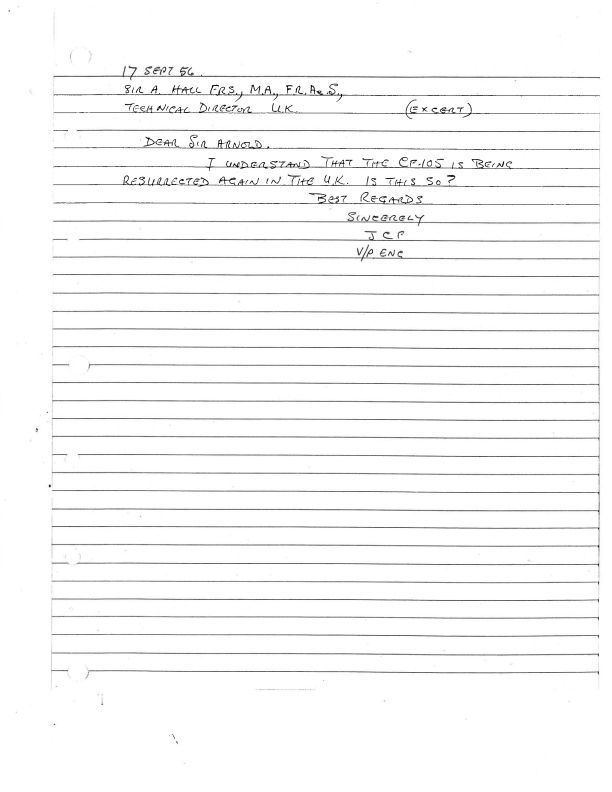 17 SEPT 56.
SIR A. HALL FRS., M.A., F.R.Ae.S.,
TECHNICAL DIRECTOR U.K. (EXCERT)
DEAR SIR ARNOLD.
I UNDERSTAND THAT THE CF-105 IS BEING
RESURRECTED AGAIN IN THE U.K. IS THIS SO?
BEST REGARDS
SINCERELY
JCF
V/P ENG